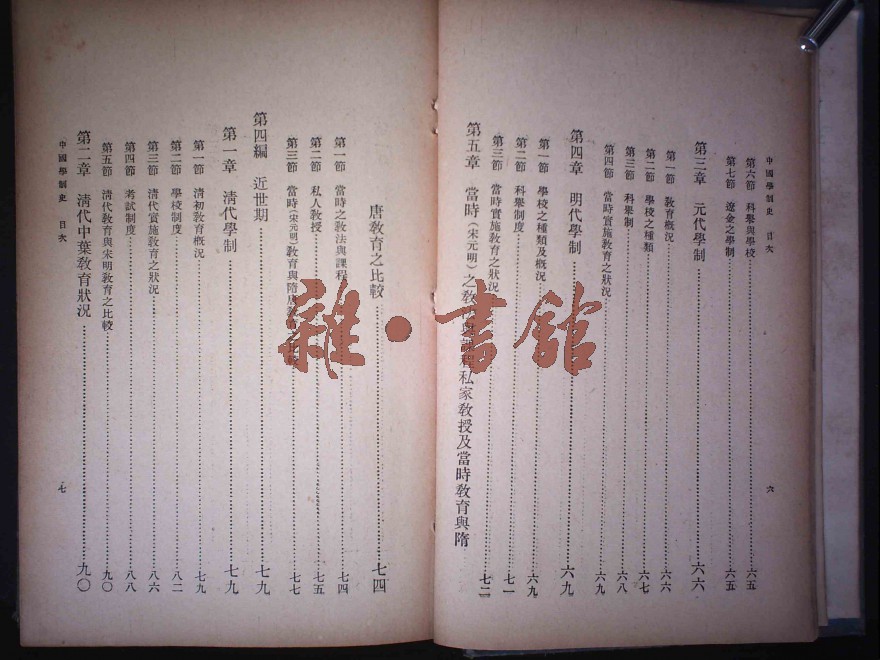 中國學制史 目次
六
第六節 科舉與學校……六五
第七節 遼金之學制……六五
第三章 元代學制……六六
第一節 教育概況……六六
第二節 學校之種類……六七
第三節 科舉制……六八
第四節 當時實施教育之狀況……六九
第四章 明代學制……六九
第一節 學校之種類及概況……六九
第二節 科舉制度……七一
第三節 當時實施教育之狀況……七二
第五章 當時(宋元明)之教法與課程私家教授及當時教育與隋
唐教育之比較……七四
第一節 當時之教法與課程……七四
第二節 私人教授……七五
第三節 當時(宋元明)教育與隋唐教育之比較……七七
第四編 近世期……七九
第一章 清代學制……七九
第一節 清初教育概況……七九
第二節 學校制度……八二
第三節 清代實施教育之狀況……八六
第四節 考試制度……八八
第五節 清代教育與宋明教育之比較……九〇
第二章 清代中葉教育狀況……九〇
中國學制史 目次
七
雜·書館